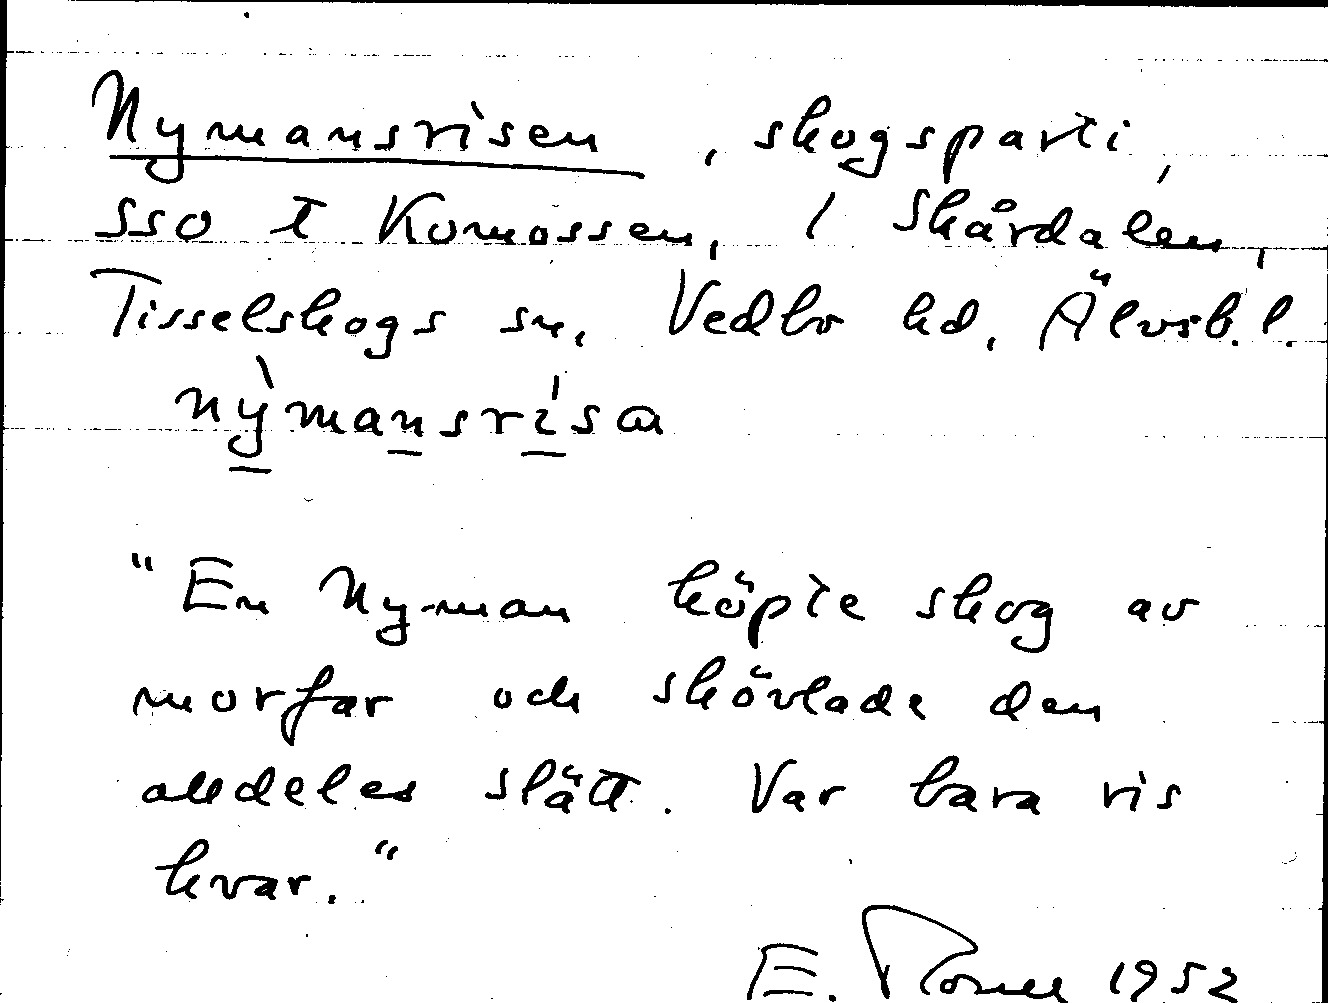 Nymansrisen, skogsparti,
SSO t Komossen, i Skårdalen,
Tisselskogs sn, Vedbo hd, Älvsb. l.
nỳmansrísa
"En Nyman köpte skog av
morfar och skövlade den
alldeles slätt. Var bara ris
kvar."
E. 1952